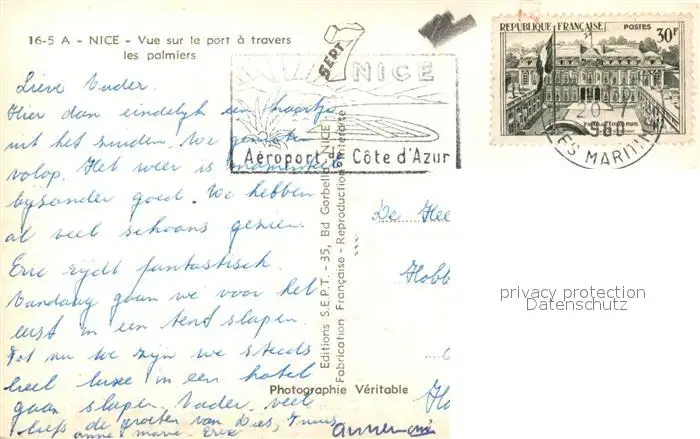 16-5 A - NICE - Vue sur le port à travers
les palmiers
Lieve Vader.
Hier dan eindelijk een kaartje
uit het zuiden. We genieten
volop. Het weer is momenteel
byzonder goed. We hebben
al veel schoons gezien.
Eric rijdt fantastisch.
Vandaag gaan we voor het
eerst in een tent slapen.
Tot nu toe zijn we steeds
heel luxe in een hotel
gaan slapen. Vader, veel
liefs de groeten van Dies,
anne marie. Eric
Editions S.E.P.T. - 35, Bd Gorbella, NICE
Fabrication Française - Reproduction interdite
Photographie Véritable
SEPT
NICE
Aéroport de Côte d'Azur
REPUBLIQUE FRANÇAISE POSTES
30F
20-7
960
ES MARITIM
De Hee
Hobb
privacy protection
Datenschutz